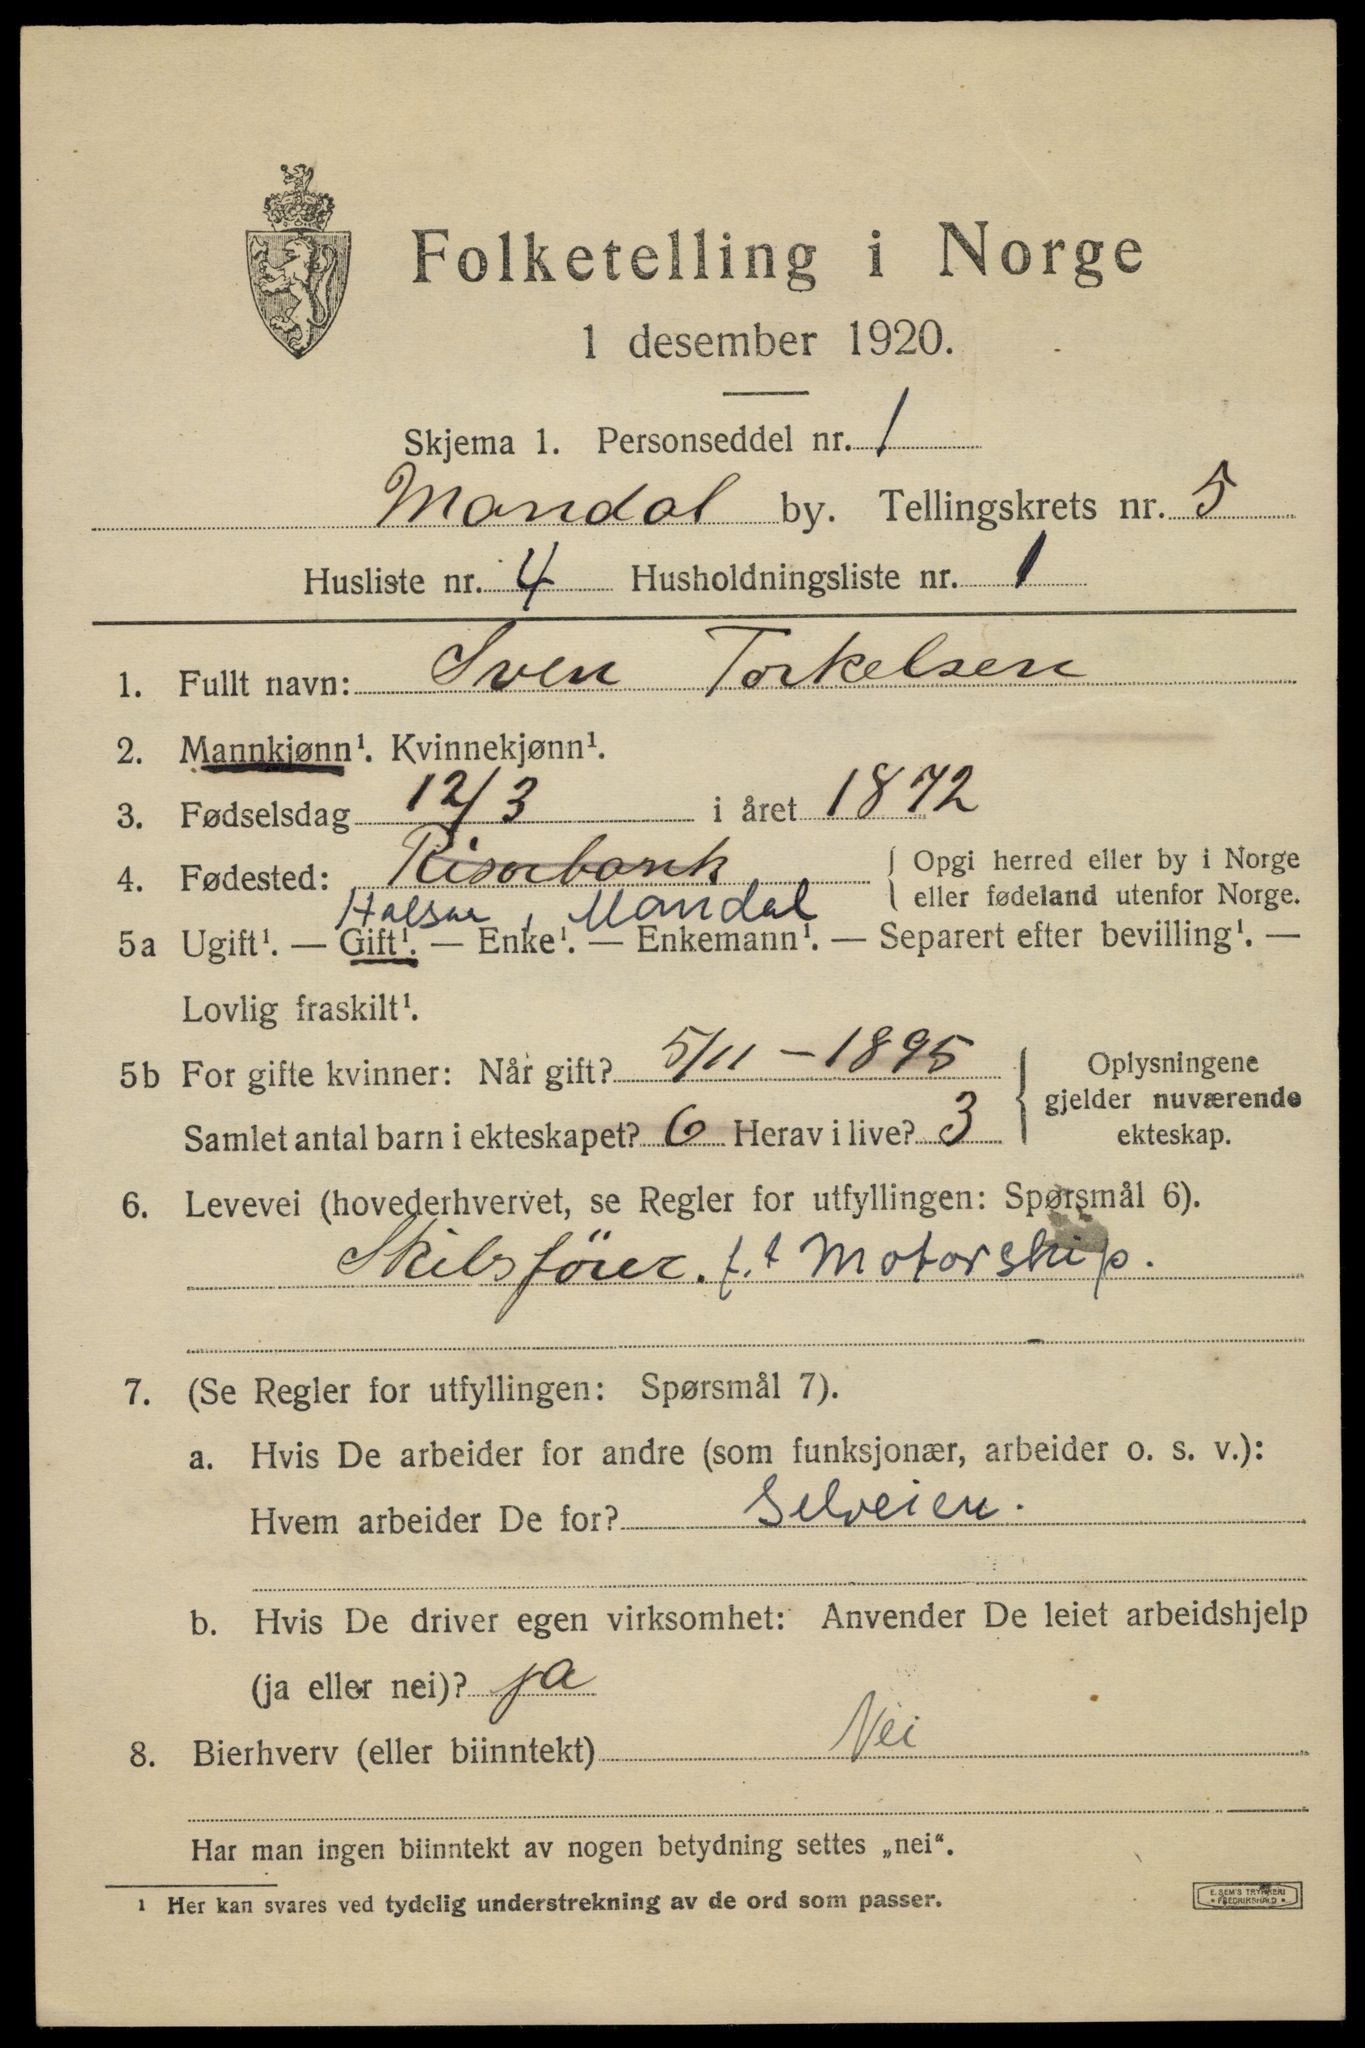 Folketelling i Norge
1 desember 1920.
Skjema 1. Personseddel nr. 1
Mandal by. Tellingskrets nr. 5
Husliste nr. 4 Husholdningsliste nr. 1
1. Fullt navn: Sven Torkelsen
2. Mannkjønn¹. Kvinnekjønn¹.
3. Fødselsdag 12/3 i året 1872
4. Fødested: Risørbank { Opgi herred eller by i Norge
eller fødeland utenfor Norge.
Halsaa, Mandal
5a Ugift¹. — Gift¹. — Enke¹. — Enkemann¹. — Separert efter bevilling¹. —
Lovlig fraskilt¹.
5b For gifte kvinner: Når gift? 5/11 – 1895
Samlet antal barn i ekteskapet? 6 Herav i live? 3
} Oplysningene
gjelder nuværende
ekteskap.
6. Levevei (hovederhvervet, se Regler for utfyllingen: Spørsmål 6).
Skibsförer. f.t Motorskip.
7. (Se Regler for utfyllingen: Spørsmål 7).
a. Hvis De arbeider for andre (som funksjonær, arbeider o. s. v.):
Hvem arbeider De for? Selveier.
b. Hvis De driver egen virksomhet: Anvender De leiet arbeidshjelp
(ja eller nei)? ja
8. Bierhverv (eller biinntekt) Nei
Har man ingen biinntekt av nogen betydning settes „nei“.
¹ Her kan svares ved tydelig understrekning av de ord som passer.
E. SEM'S TRYKKERI
* FREDRIKSHALD *